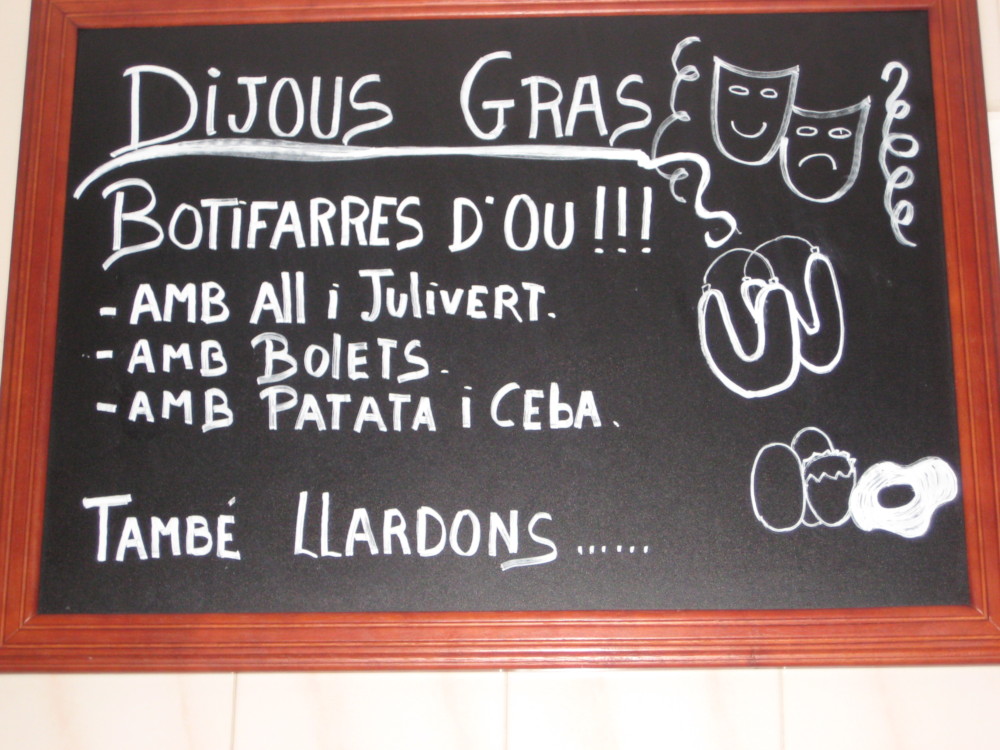 DiJOUS GRAS
BOTiFARRES D'OU!!!
- AMB All i JuliVERT.
- AMB BolETS.
- AMB PATATA i CEbA.
TAMBÉ LLARDONS......